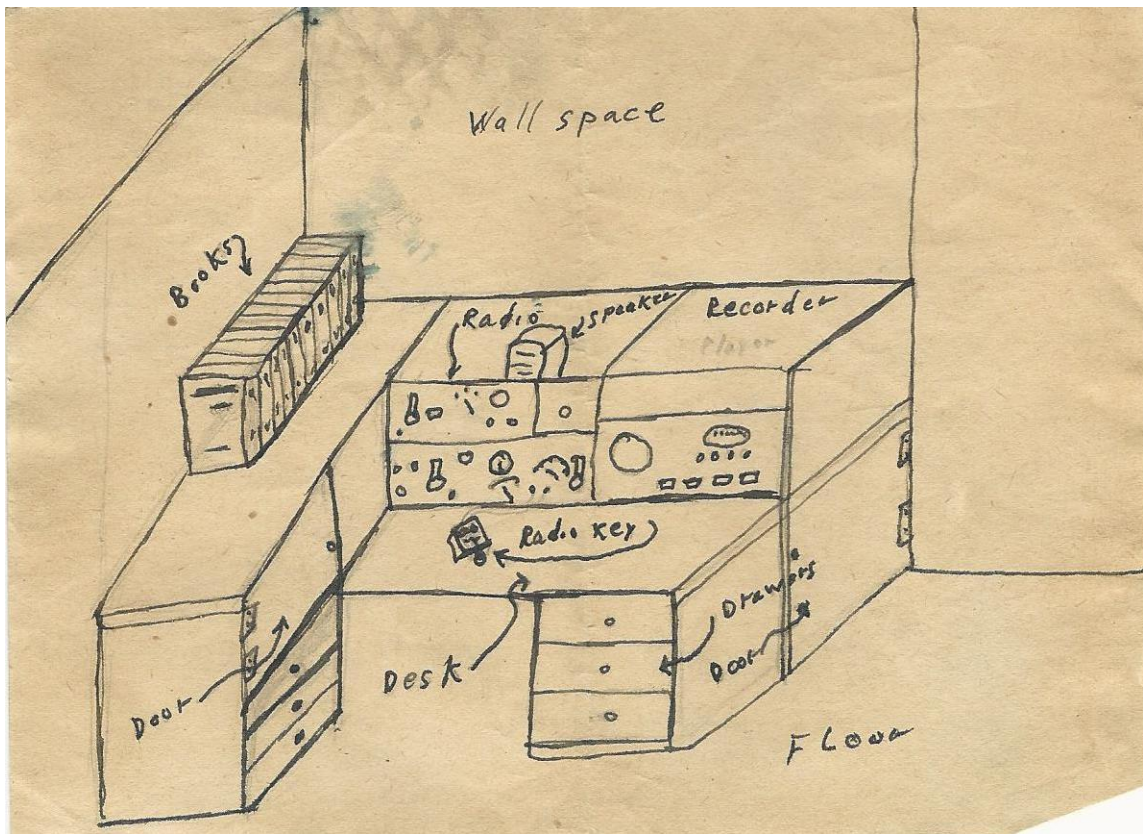 Wall space
Books
Radio
Speaker
Recorder
Radio Key
Drawers
Door
Desk
Door
FLoor